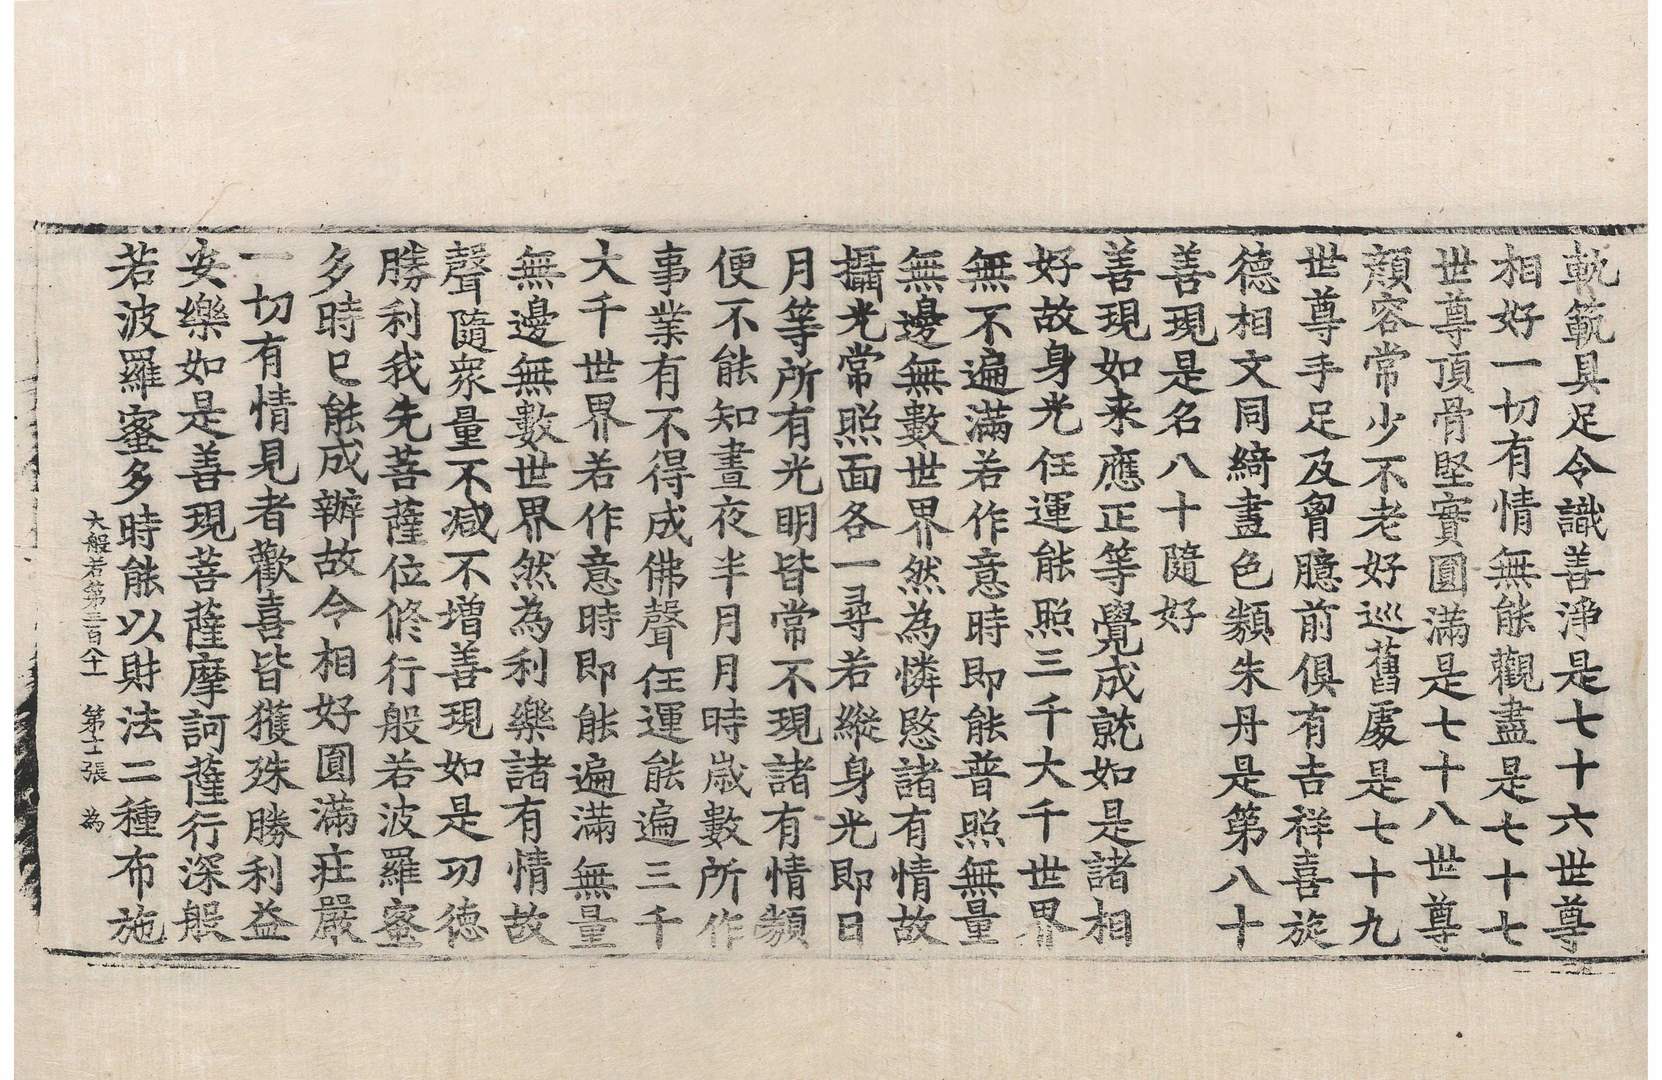 軌範具足令識善淨是七十六世尊
相好一切有情無能觀盡是七十七
世尊頂骨堅實圓滿是七十八世尊
顔容常少不老好巡舊處是七十九
世尊手足及胷臆前俱有吉祥喜旋
德相文同綺畫色類朱丹是第八十
善現是名八十隨好
善現如来應正等覺成就如是諸相
好故身光任運能照三千大千世界
無不遍滿若作意時即能普照無量
無邊無數世界然為憐愍諸有情故
攝光常照面各一尋若縱身光即日
月等所有光明皆常不現諸有情類
便不能知晝夜半月月時歲數所作
事業有不得成佛聲任運能遍三千
大千世界若作意時即能遍滿無量
無邊無數世界然為利樂諸有情故
聲隨衆量不減不增善現如是功德
勝利我先菩薩位修行般若波羅蜜
多時已能成辦故今相好圓滿莊嚴
一切有情見者歡喜皆獲殊勝利益
安樂如是善現菩薩摩訶薩行深般
若波羅蜜多時能以財法二種布施
大般若第三百八十一 第十二張 為